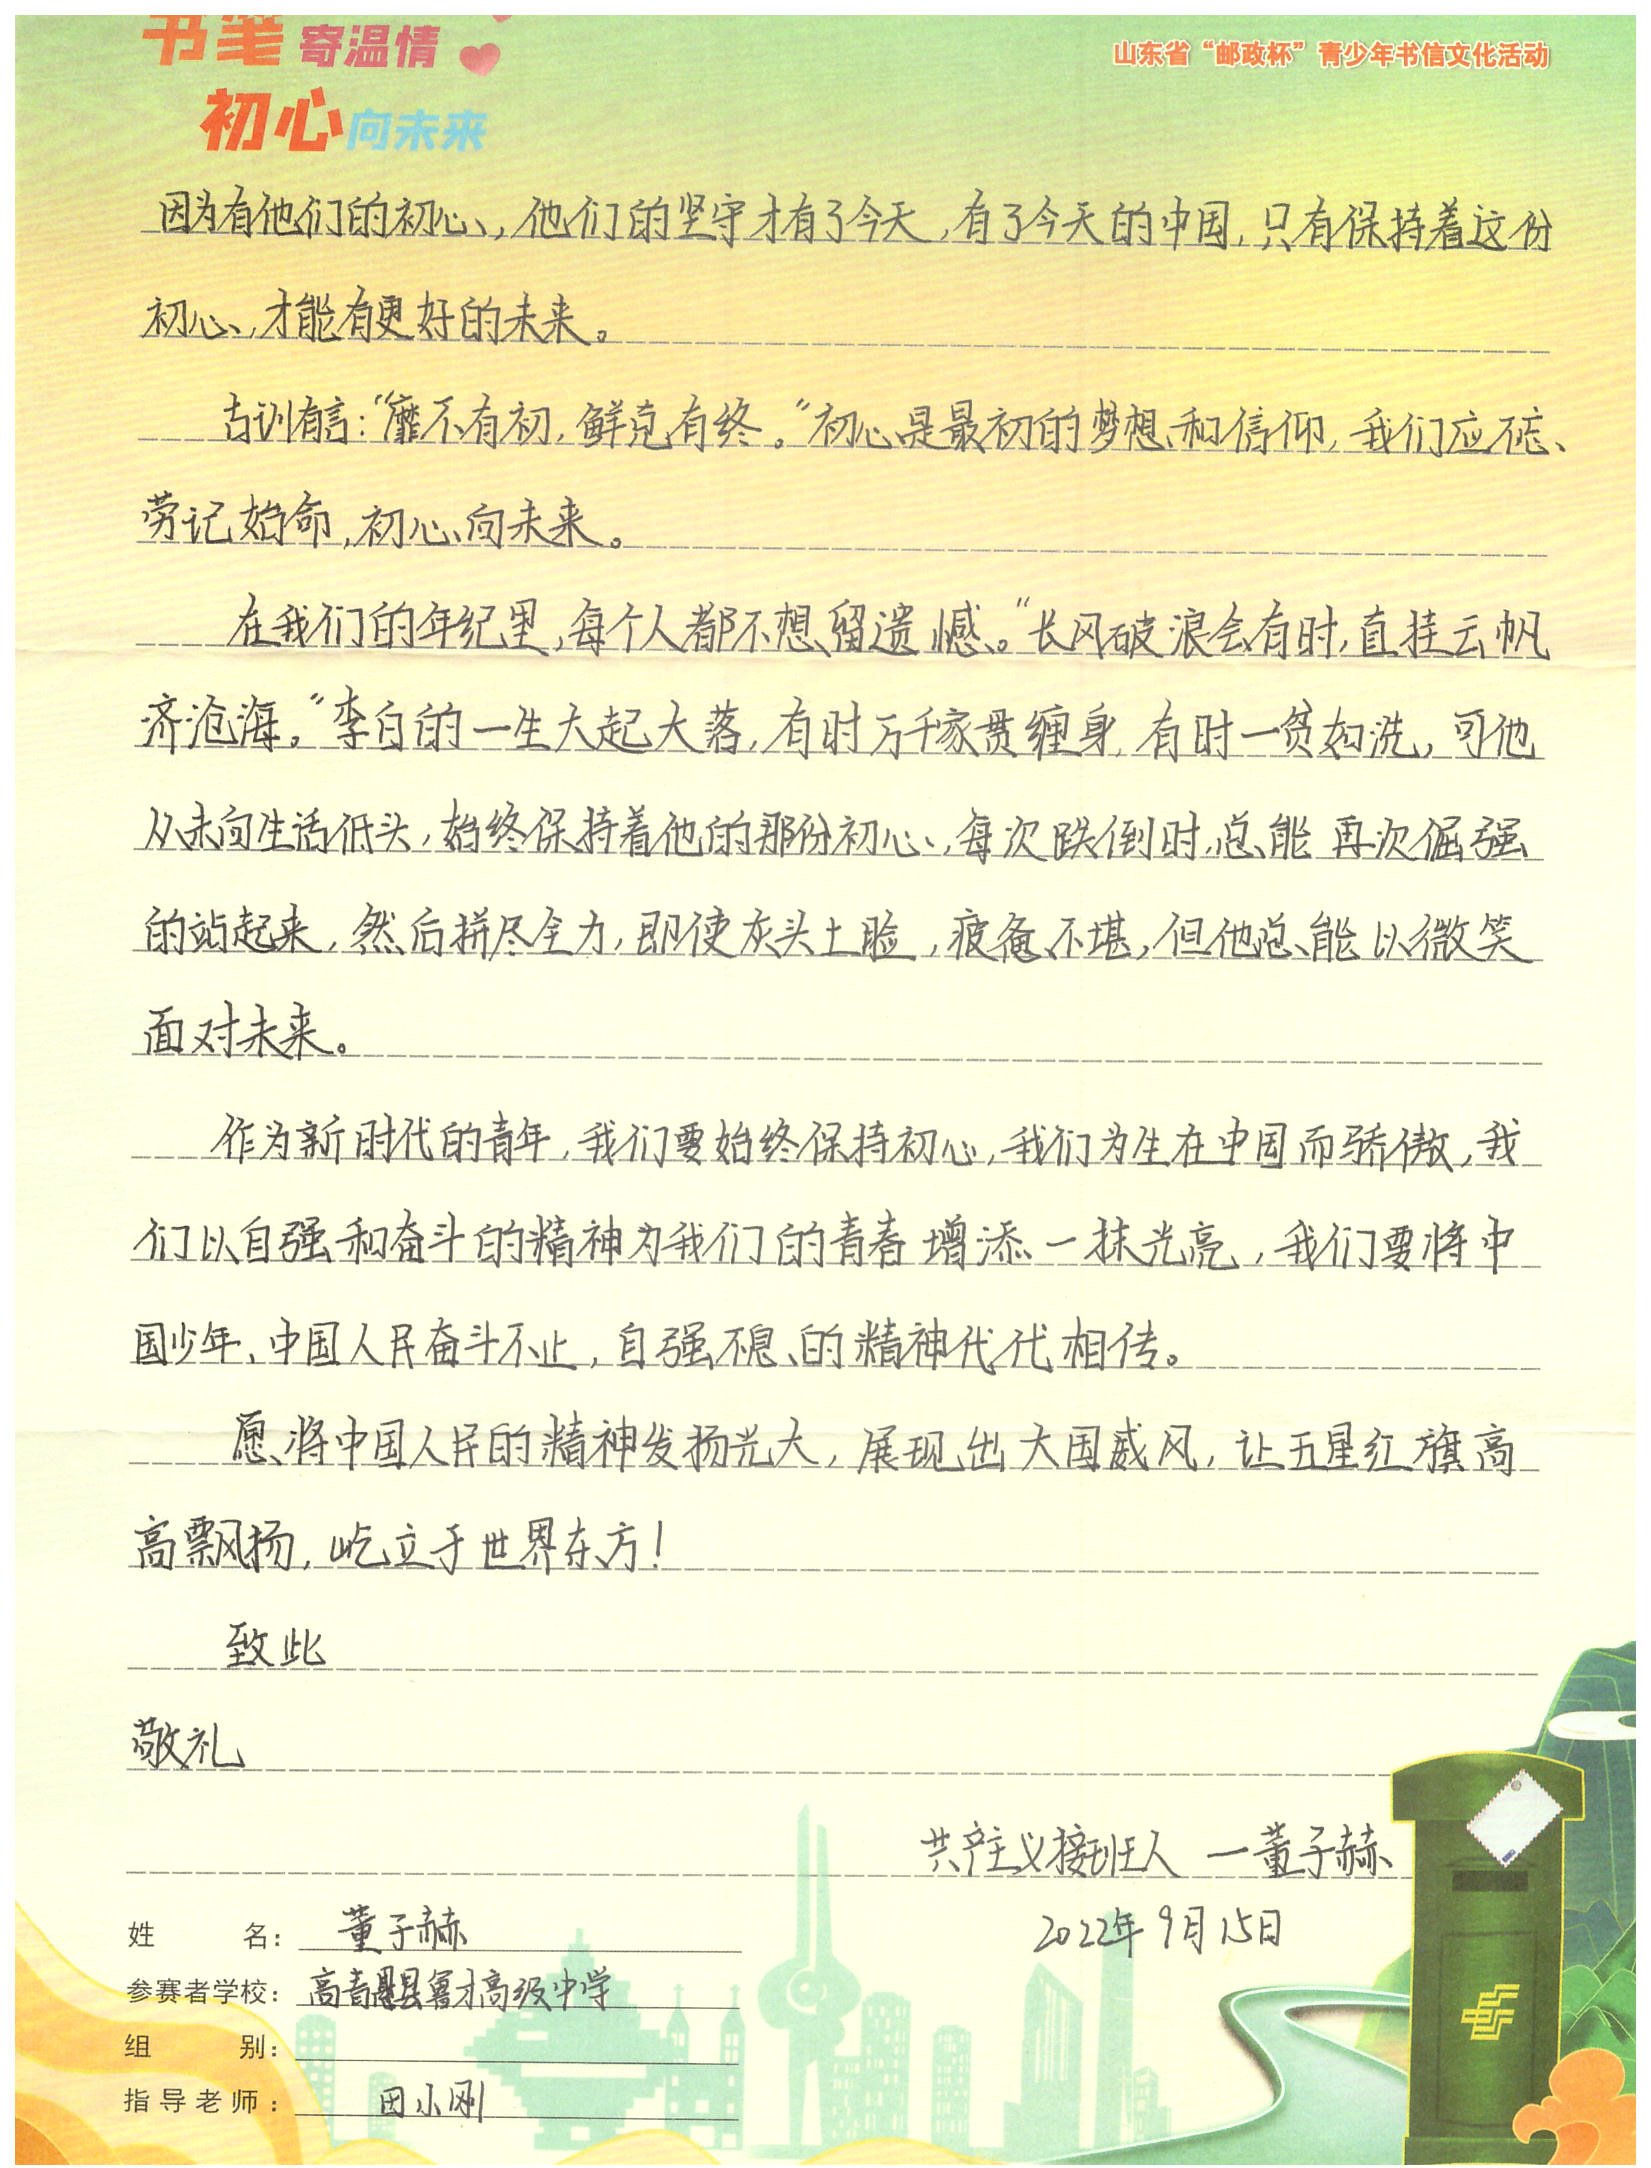 书笔寄温情
初心向未来
山东省“邮政杯”青少年书信文化活动
因为有他们的初心,他们的坚守才有了今天,有了今天的中国,只有保持着这份
初心,才能有更好的未来。
古训有言:“靡不有初,鲜克有终。”初心是最初的梦想和信仰,我们应
劳记始命,初心向未来。
在我们的年纪里,每个人都不想留遗憾。“长风破浪会有时,直挂云帆
济沧海。”李白的一生大起大落,有时万千家贯缠身,有时一贫如洗,可他
从未向生活低头,始终保持着他的那份初心,每次跌倒时,总能再次倔强
的站起来,然后拼尽全力,即使灰头土脸,疲惫不堪,但他总能以微笑
面对未来。
作为新时代的青年,我们要始终保持初心,我们为生在中国而骄傲,我
们以自强和奋斗的精神为我们的青春增添一抹光亮,我们要将中
国少年、中国人民奋斗不止,自强不息的精神代代相传。
愿将中国人民的精神发扬光大,展现出大国威风,让五星红旗高
高飘扬,屹立于世界东方!
致此
敬礼
共产主义接班人 一董子赫
2022年9月15日
姓 名: 董子赫
参赛者学校: 高青县鲁才高级中学
组 别:
指导老师: 田小刚